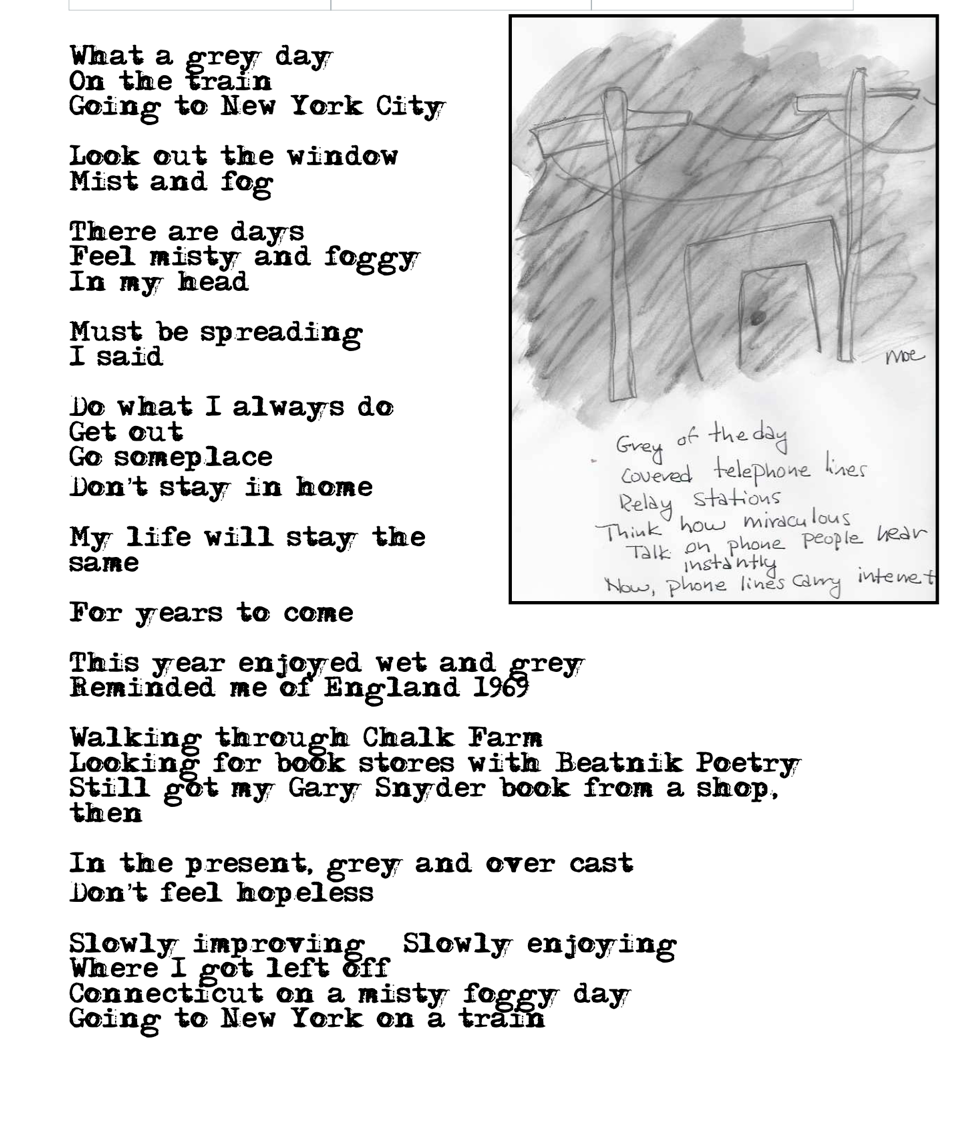 What a grey day
On the train
Going to New York City
Look out the window
Mist and fog
There are days
Feel misty and foggy
In my head
Must be spreading
I said
Do what I always do
Get out
Go someplace
Don't stay in home
My life will stay the
same
For years to come
This year enjoyed wet and grey
Reminded me of England 1969
Walking through Chalk Farm
Looking for book stores with Beatnik Poetry
Still got my Gary Snyder book from a shop,
then
In the present, grey and over cast
Don't feel hopeless
Slowly improving   Slowly enjoying
Where I got left off
Connecticut on a misty foggy day
Going to New York on a train
moe
Grey of the day
covered telephone lines
Relay stations
Think how miraculous
Talk on phone people hear
instantly
Now, phone lines carry internet